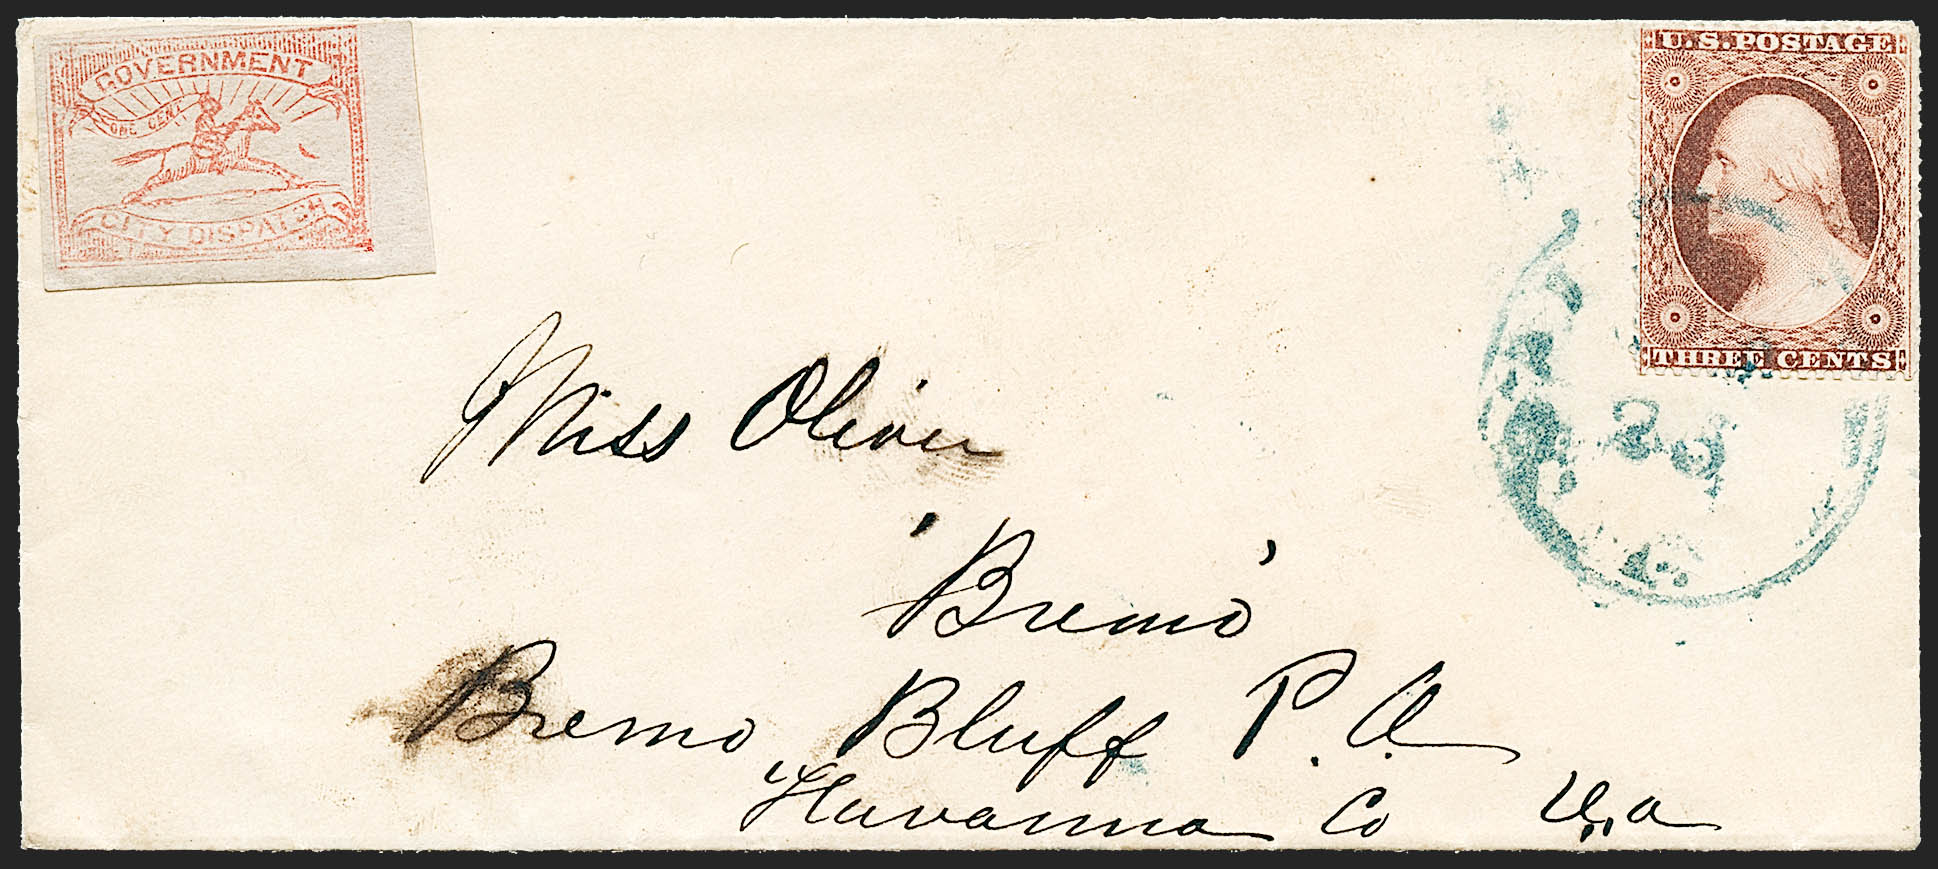 GOVERNMENT
ONE CENT
CITY DISPATCH
U.S. POSTAGE
THREE CENTS
25
Miss Oliver
'Bremo'
Bremo Bluff P. O.
Fluvanna Co Va